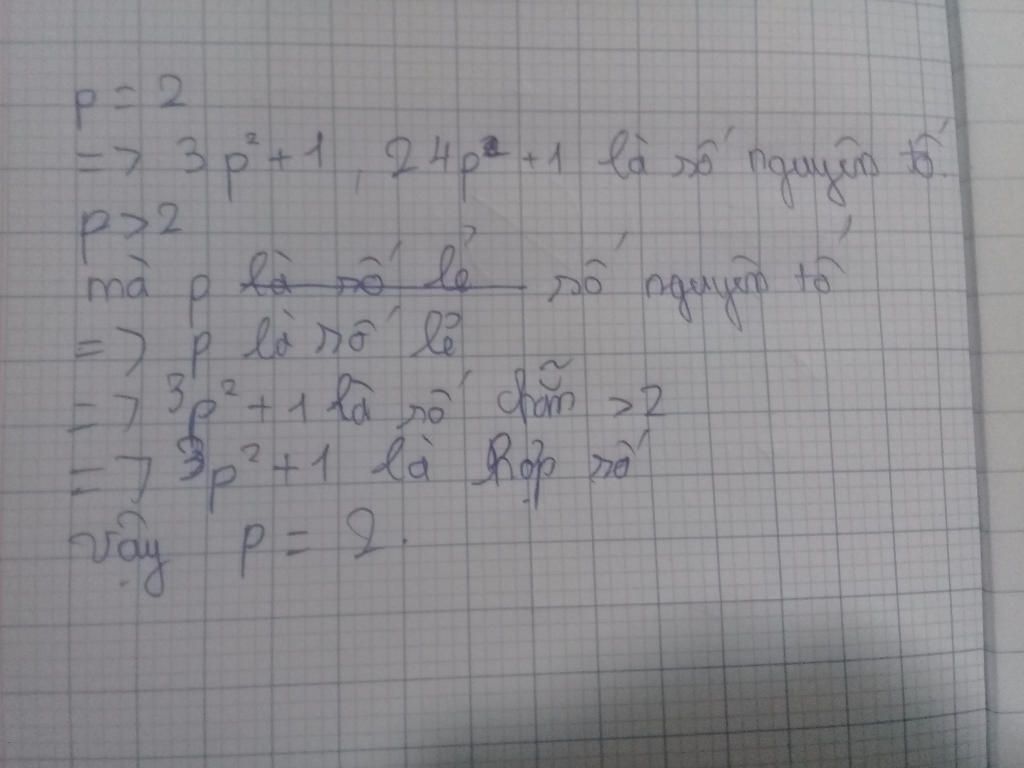 p = 2
=> 3p²+1, 24p²+1 là số nguyên tố.
p>2
mà p là số lẻ số nguyên tố
=> p là số lẻ
=> 3p²+1 là số chẵn >2
=> 3p²+1 là hợp số
Vậy p = 2.